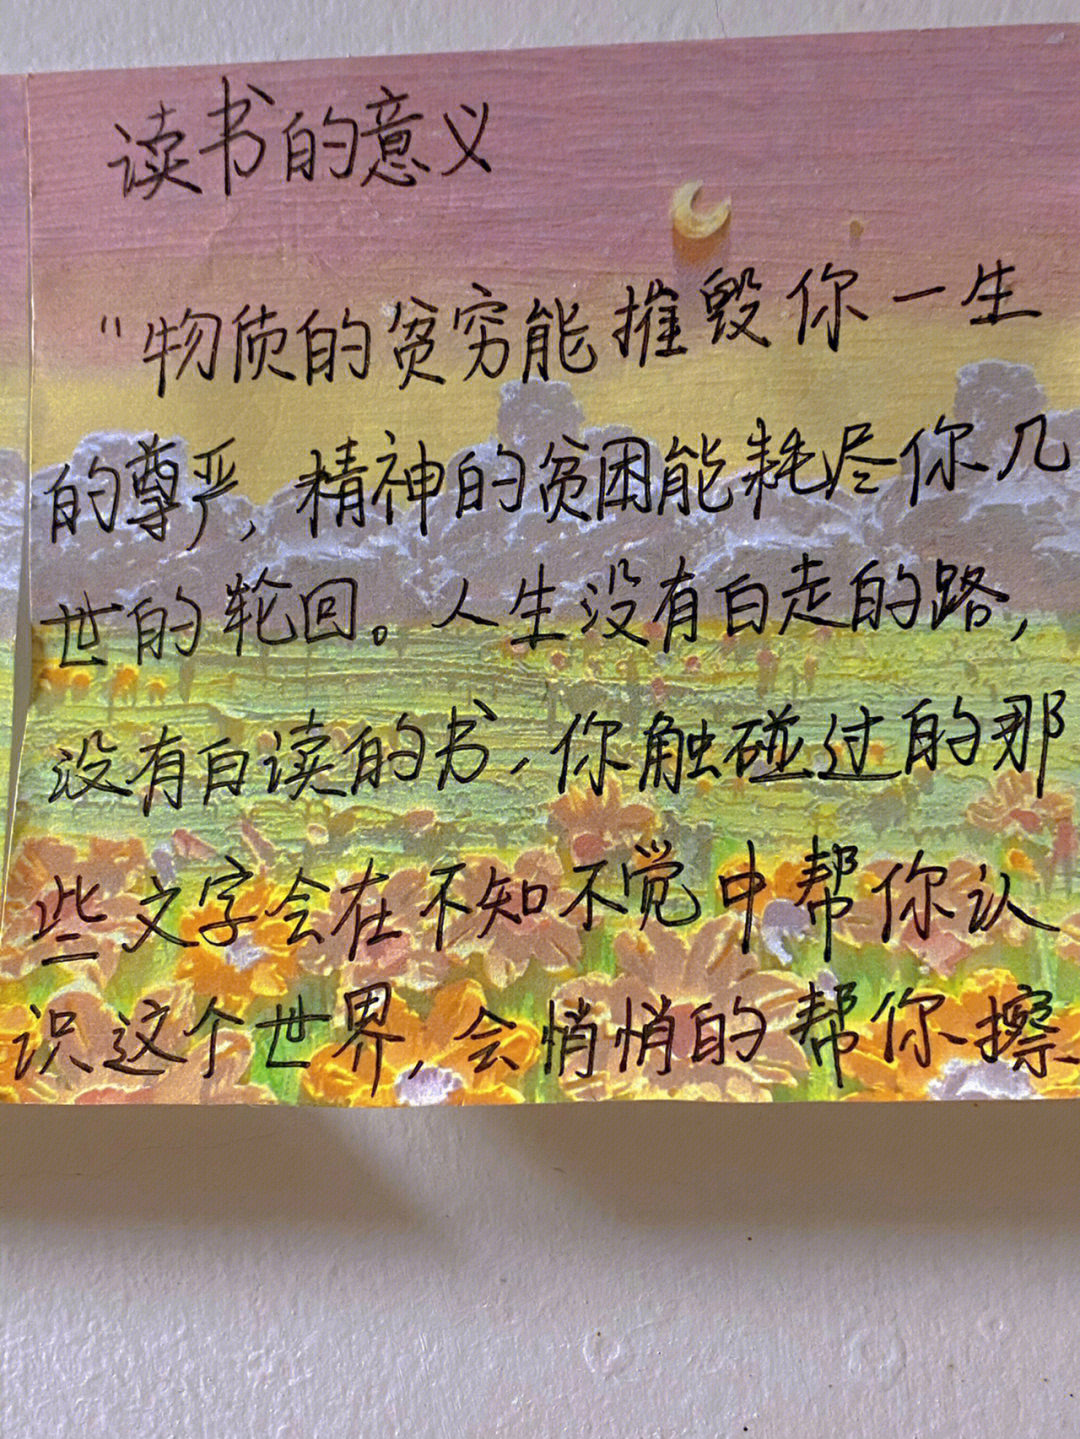 读书的意义
"物质的贫穷能摧毁你一生
的尊严,精神的贫困能耗尽你几
世的轮回。人生没有白走的路,
没有白读的书,你触碰过的那
些文字会在不知不觉中帮你认
识这个世界,会悄悄的帮你擦